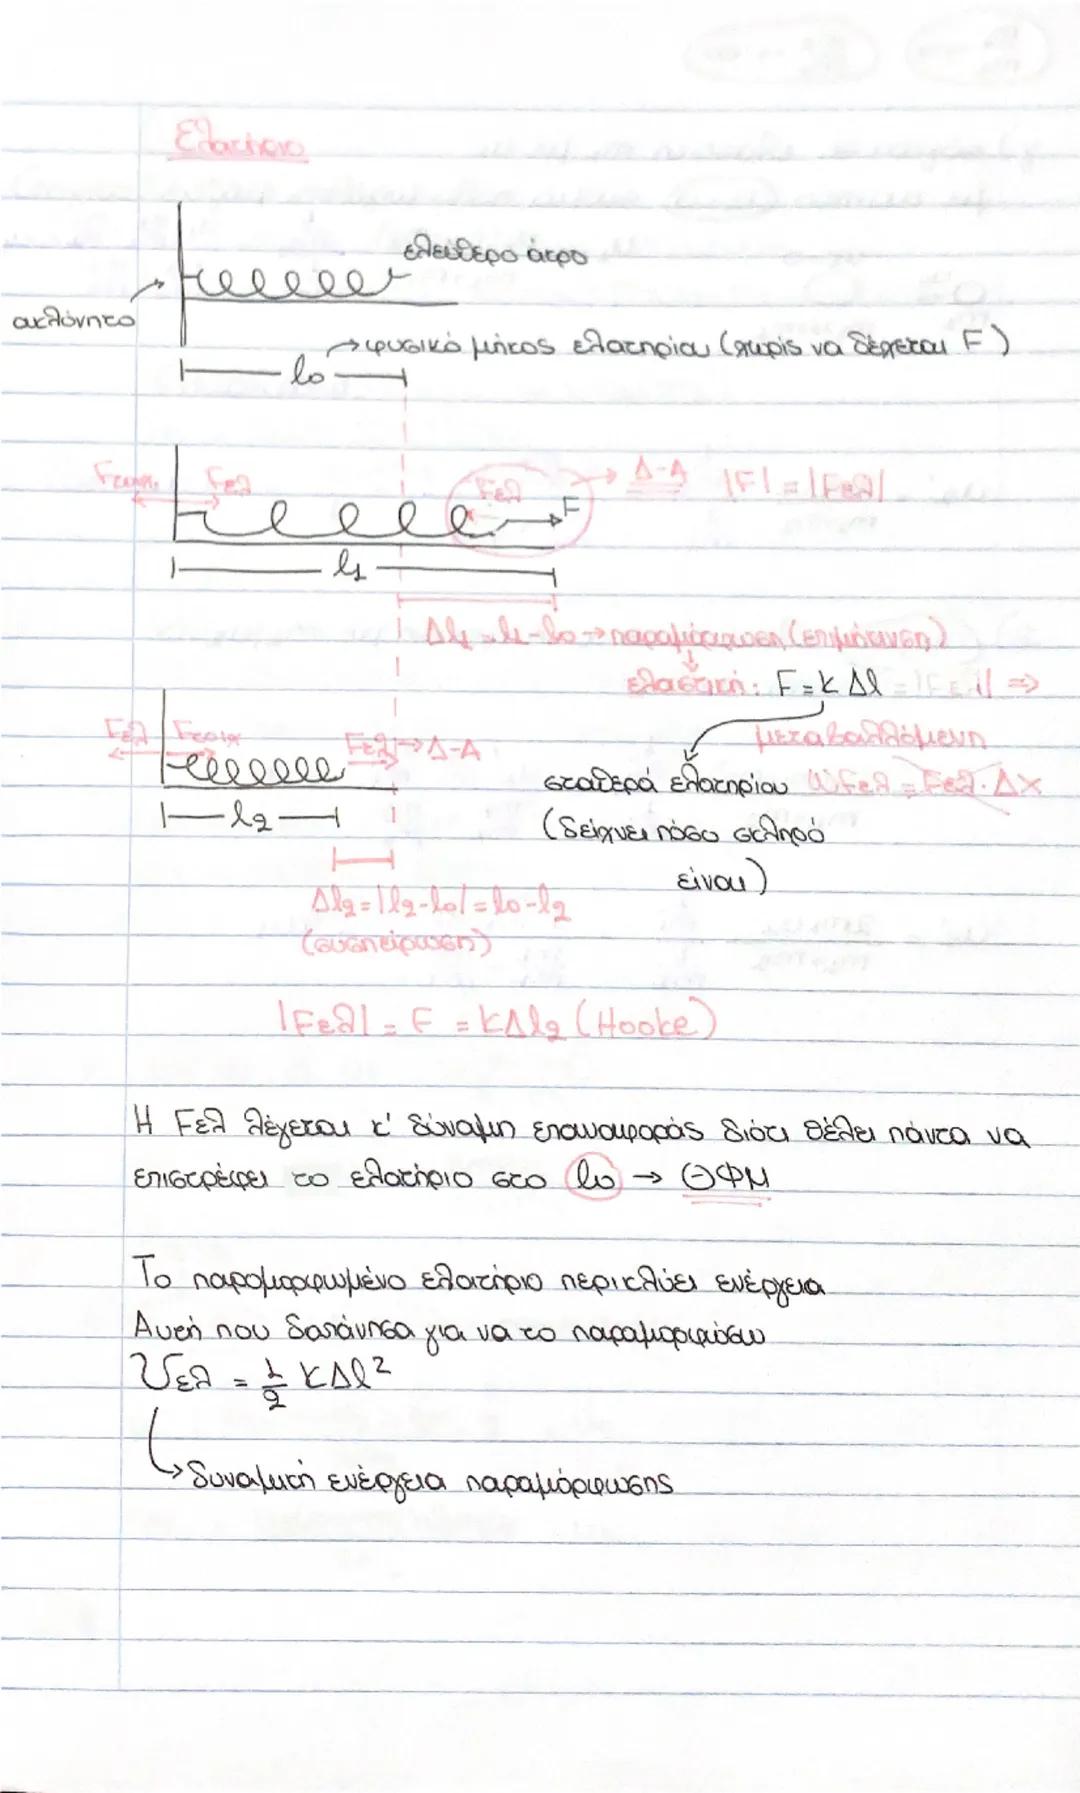 Ελατήριο
ελεύθερο άκρο
ακλόνητο
→φυσικό μήκος ελατηρίου (χωρίς να δέχεται F)
l₀
Fελ
Fελ
F
→ Δ-Α |F| = |Fελ|
l₁
Δl₁ = l₁-l₀ → παραμόρφωση (επιμήκυνση)
ελαστική: F = k Δl = |Fελ| ⇒
μεταβαλλόμενη
Fελ Fτοιχ Fελ → Δ-Α
σταθερά ελατηρίου WFελ = Fελ · Δx
(δείχνει πόσο σκληρό
είναι)
l₂
Δl₂ = |l₂-l₀| = l₀-l₂
(συσπείρωση)
|Fελ| = F = kΔl₂ (Hooke)
Η Fελ λέγεται κ' δύναμη επαναφοράς διότι θέλει πάντα να
επιστρέφει το ελατήριο στο l₀ → ΘΦΜ
Το παραμορφωμένο ελατήριο περικλύει ενέργεια
Αυτή που δαπάνησα για να το παραμορφώσω
Uελ = ½ kΔl²
↳ Δυναμική ενέργεια παραμόρφωσης